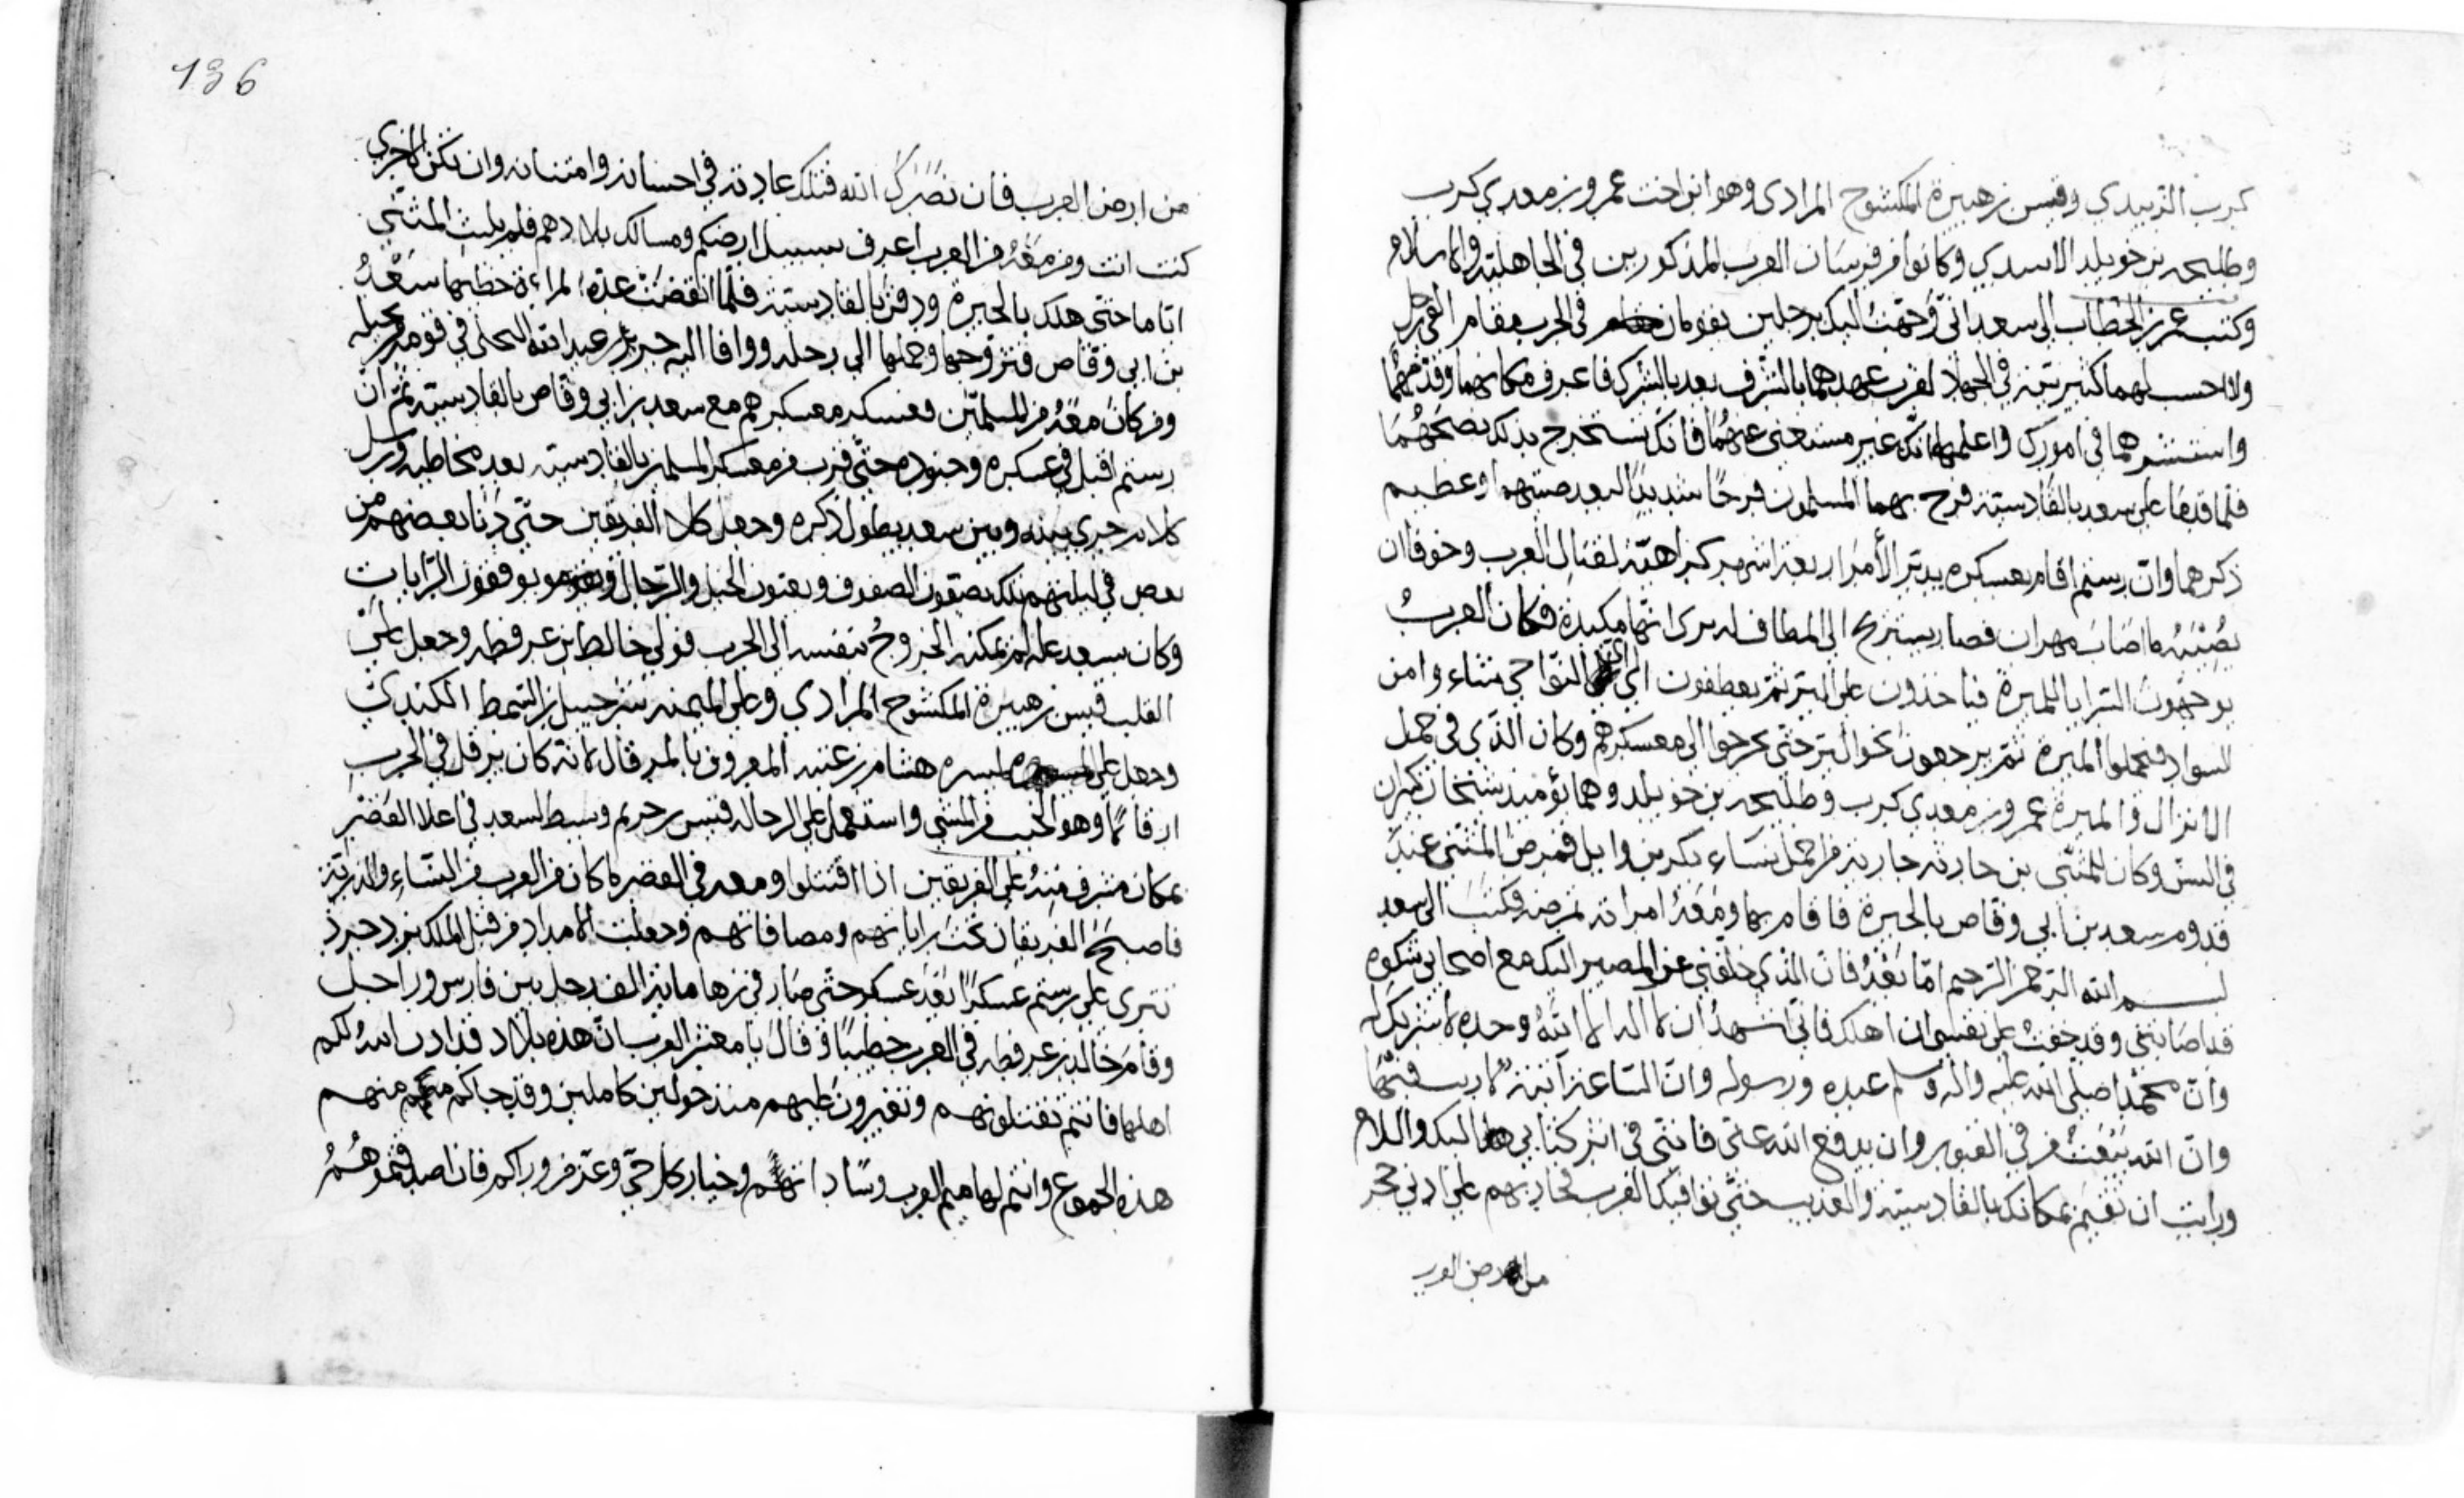 كرب الزبيدي وقيس بن هبيرة المكشوح المرادي وهو ابن اخت عمرو بن معدي كرب
وطليحه بن خويلد الاسدي وكانوا من فرسان العرب المذكورين في الجاهلية والاسلام
وكتب عمر بن الخطاب الى سعد اني وجهت اليك برجلين يقومان في الحرب مقام الفي رجل
ولا احسب لهما كثير نية في الجهاد لقرب عهدهما بالشرك فاعرف مكانهما وقدمهما
واستشرهما في امورك واعلمهما انك غير مستغني عنهما فانك تستخرج بذلك نصحهما
فلما قدما على سعد بالقادسية فرح بهما المسلمون فرحا شديدا لبعد صيتهما وعظيم
ذكرهما وان رستم اقام بعسكره بدير الأعور اربعة اشهر كراهية لقتال العرب وخوفا ان
يصيبه ما اصاب مهران فصار يستريح الى المطاف له يرى انها مكيدة فكان العرب
يوجهون السرايا للميرة فياخذون على البر ثم يعطفون الى النواحي شاء وامن
السواد فيحملوا الميرة ثم يرجعون نحو البر حتى يخرجوا الى معسكرهم وكان الذي في حمل
الانزال والميرة عمرو بن معدي كرب وطليحه بن خويلد وهما يؤميد شيخان كبيران
في السن وكان للمثنى بن حارثه جارية من اجمل نساء بكر بن وايل فمرض المثنى عند
قدوم سعد بن ابي وقاص بالحيرة فاقام بها ومعه امراته تمرضه فكتب الى سعد
بسم الله الرحمن الرحيم اما بعد فان الذي خلفني عن المصير اليك مع اصحابي شكوه
قد اصابتني وقد خفت على نفسي ان اهلك فاني اشهد ان لا اله الا الله وحده لا شريك له
وان محمدا صلى الله عليه واله وسلم عبده ورسوله وان الساعة آتية لا ريب فيها
وان الله يبعث من في القبور وان يدفع الله عني فانني في اثر كتابي اليك والسلام
ورايت ان تقيم بمكانك بالقادسية والعذيب حتى توافيك الفرس فتحاربهم على ادنى حجر
من ارض العرب
136
من ارض العرب فان نصرك الله فتلك عادته في احسانه وامتنانه وان تكن الاخرى
كنت انت ومن معه من العرب اعرف بسبيل ارضكم ومسالك بلادهم فلم يلبث المثنى
اياما حتى هلك بالحيرة ودفن بالقادسية فلما انقضت عدة المراءة خطبها سعد
بن ابي وقاص فتزوجها وحملها الى رحله ووافا اليه جرير بن عبد الله البجلي في قومه بجيله
ومن كان معه من المسلمين فعسكر معسكرهم مع سعد بن ابي وقاص بالقادسية ثم ان
رستم اقبل في عسكره وجنوده حتى قرب من معسكر المسلمين بالقادسية بعد مخاطبه ورسل
كلام جرى بينه وبين سعد يطول ذكره وجعل كلا الفريقين حتى دنا بعضهم من
بعض في ليلتهم تلك يصفون الصفوف ويعبون الخيل والرجال ويوقفون الرايات
وكان بسعد علة لم يمكنه الخروج بنفسه الى الحرب فولى خالد بن عرفطه وجعل على
القلب قيس بن هبيرة المكشوح المرادي وعلى الميمنه شرحبيل بن السمط الكندي
وجعل على الميسره هشام بن عتبه المعروف بالمرقال لانه كان يرقل في الحرب
ارقالا وهو الخبب من المشي واستعمل على الرجاله قيس بن خريم وبسط لسعد في اعلا القصر
بمكان مشرف منه على الفريقين اذا اقتتلوا ومعه في القصر ما كان من العرب من النساء والذرية
فاصبح الفريقان تحت راياتهم ومصافاتهم وجعلت الامداد من قبل الملك يزدجرد
تترى على رستم عسكرا بعد عسكر حتى صار في زها ماية الف رجل بين فارس وراجل
وقام خالد بن عرفطه في العرب خطيبا وقال يا معشر العرب ان هذه بلاد قد اذن الله لكم
اهلها فانتم تقتلونهم وتغيرون عليهم منذ حولين كاملين وقد جاكم منهم
هذه الجموع وانتم لهاميم العرب وساداتهم وخيار كل حي وعز من وراكم فان اصدقتموهم